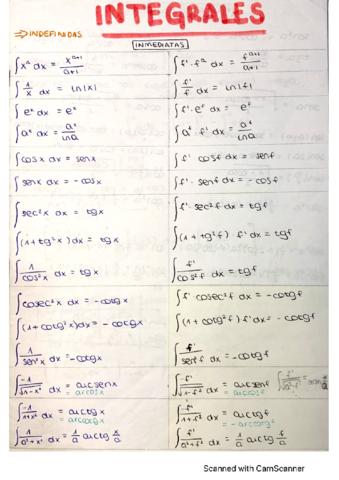 INTEGRALES
⇒ INDEFINIDAS
INMEDIATAS
∫x^a dx = x^(a+1)/(a+1)    ∫f'·f^a dx = f^(a+1)/(a+1)
∫1/x dx = ln|x|    ∫f'/f dx = ln|f|
∫e^x dx = e^x    ∫f'·e^f dx = e^f
∫a^x dx = a^x/lna    ∫a^f·f' dx = a^f/lna
∫cosx dx = senx    ∫f' cosf dx = senf
∫senx dx = -cosx    ∫f'·senf dx = -cosf
∫sec²x dx = tgx    ∫f'·sec²f dx = tgf
∫(1+tg²x)dx = tgx    ∫(1+tg²f)·f' dx = tgf
∫1/cos²x dx = tgx    ∫f'/cos²f dx = tgf
∫cosec²x dx = -cotgx    ∫f' cosec²f dx = -cotgf
∫(1+cotg²x)dx = -cotgx    ∫(1+cotg²f)f'dx = -cotgf
∫1/sen²x dx = -cotgx    ∫f'/sen²f dx = -cotgf
dx = arcsenx    dx = arcsenf
= arccosx    = arccosf
dx = arctgx    dx = arctgf
= arccotgx    = -arccotgf
∫1/(a²+x²) dx = 1/a arctg x/a    ∫f'/(a²+f²) dx = 1/a arctg f/a
Scanned with CamScanner